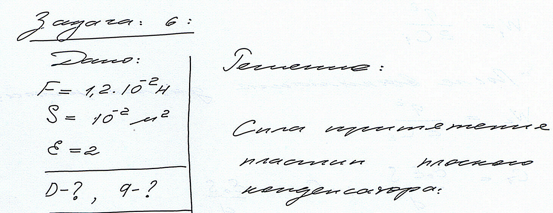 Задача: 6:
Дано:
F = 1,2·10⁻² Н
S = 10⁻² м²
ε = 2
D-?, q-?
Решение:
Сила притяжения
пластин плоского
конденсатора: